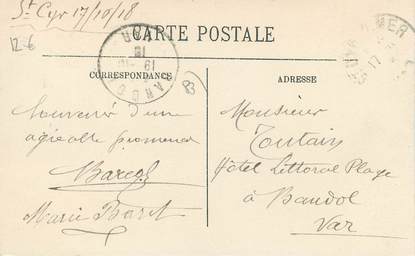 St Cyr 17/10/18
CARTE POSTALE
12-6
BANDOL
VAR
19
18
CORRESPONDANCE
ADRESSE
83
Souvenir d'une
agréable promenade
Marcel
Marie
Monsieur
Toutain
Hôtel Littoral Plage
à Bandol
Var